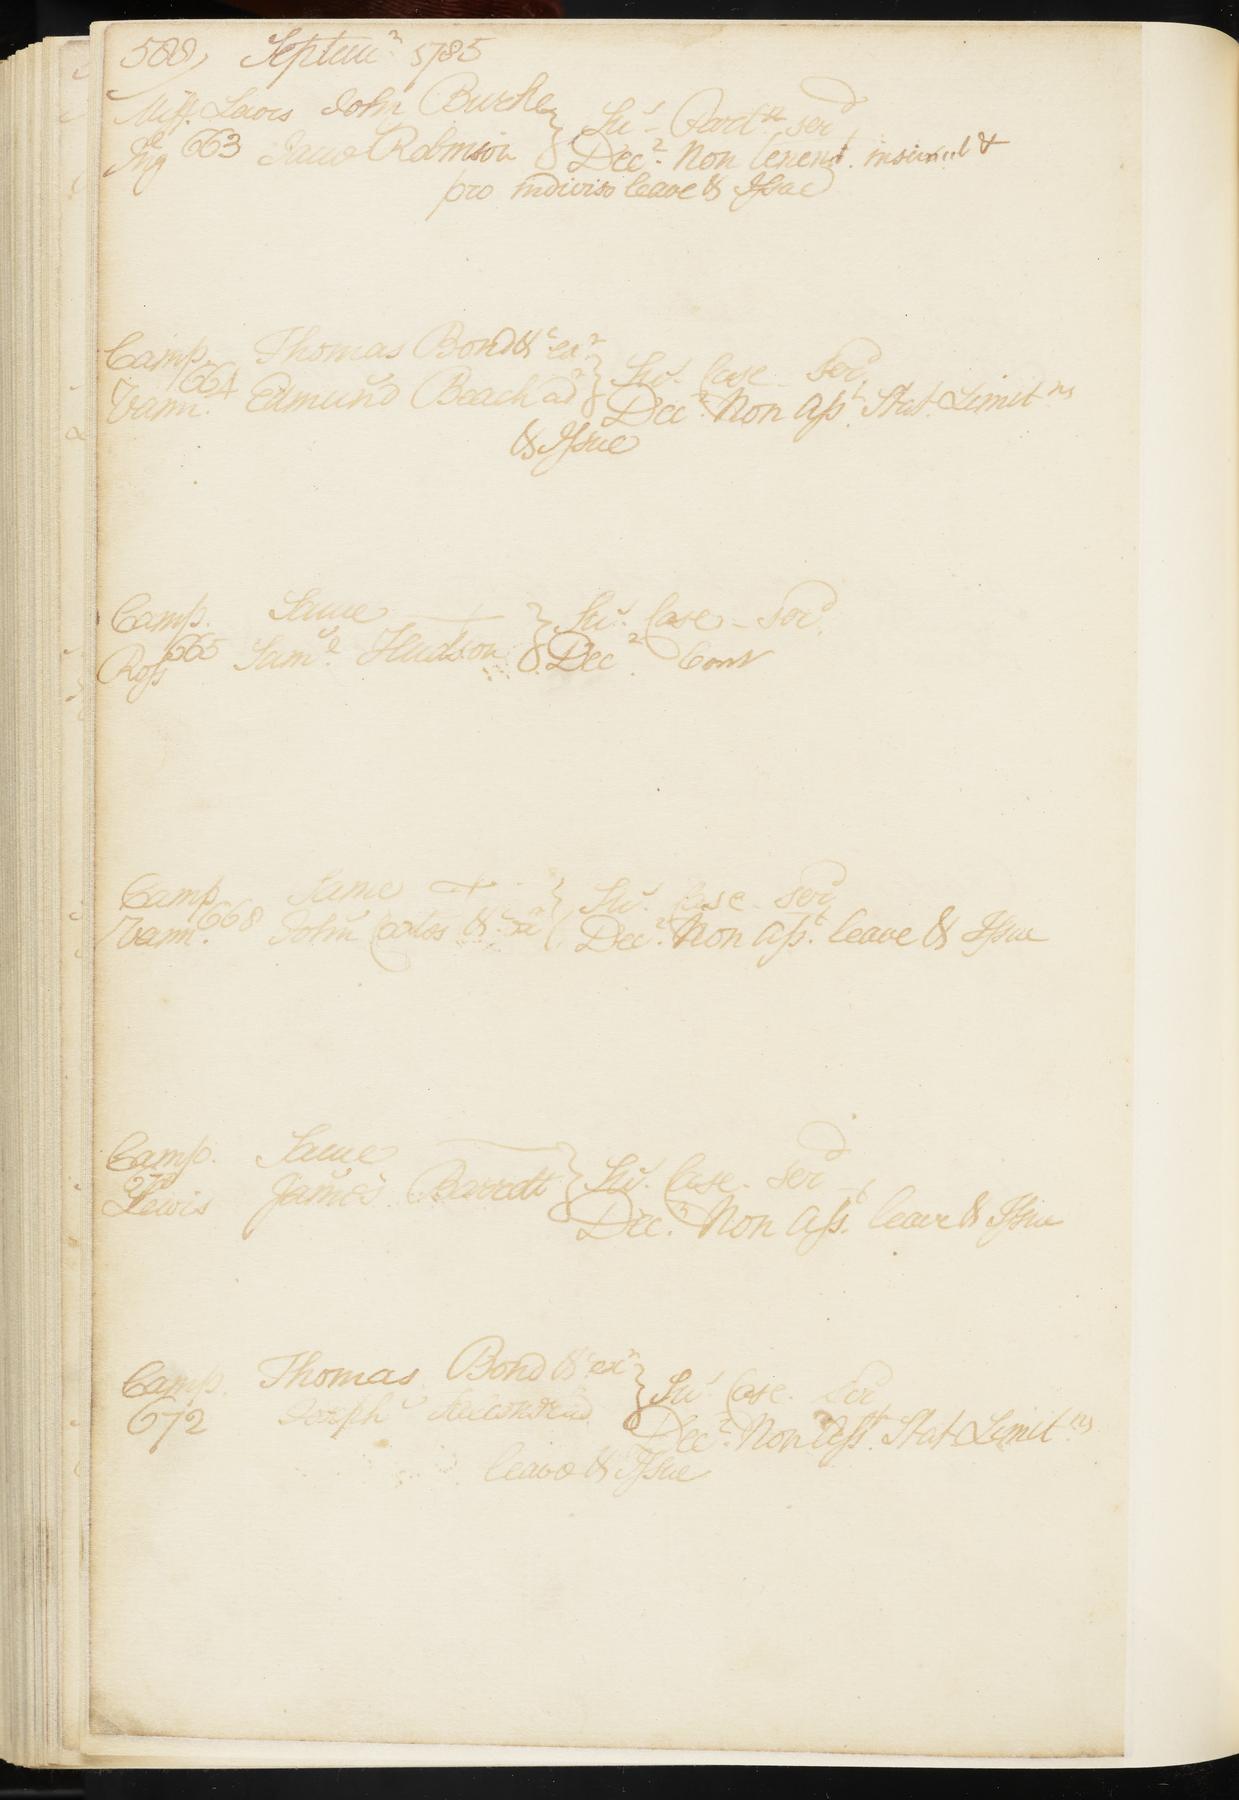 588) Septem^r 1785
Miff. Lewis John Burke } Su^s - Part^n ser^d
Ing^l 663 Same Robinson } Dec^r. Non tenent insimul &
pro indiviso leave & Issue
Camp. Thomas Bond &^c ex^r } Su^s. Case - Ser^d
Vann. 664 Edmund Beach ad^r } Dec^r. Non Ass^t. Stat Limit^ns
& Issue
Camp. Same } Su^s. Case - Ser^d
Ross 665 Sam^l Hudson } Dec^r. Cont
Camp. Same } Su^s. Case - Ser^d
Vann. 668 John &^c ex^r } Dec^r. Non Ass^t. leave & Issue
Camp. Same } Su^s. Case - Ser^d
Lewis James Barrett } Dec^r. Non Ass^t. leave & Issue
Camp. Thomas Bond &^c ex^r } Su^s Case. Ser^d
672 Joseph } Dec^r. Non Ass^t. Stat Limit^ns
leave & Issue